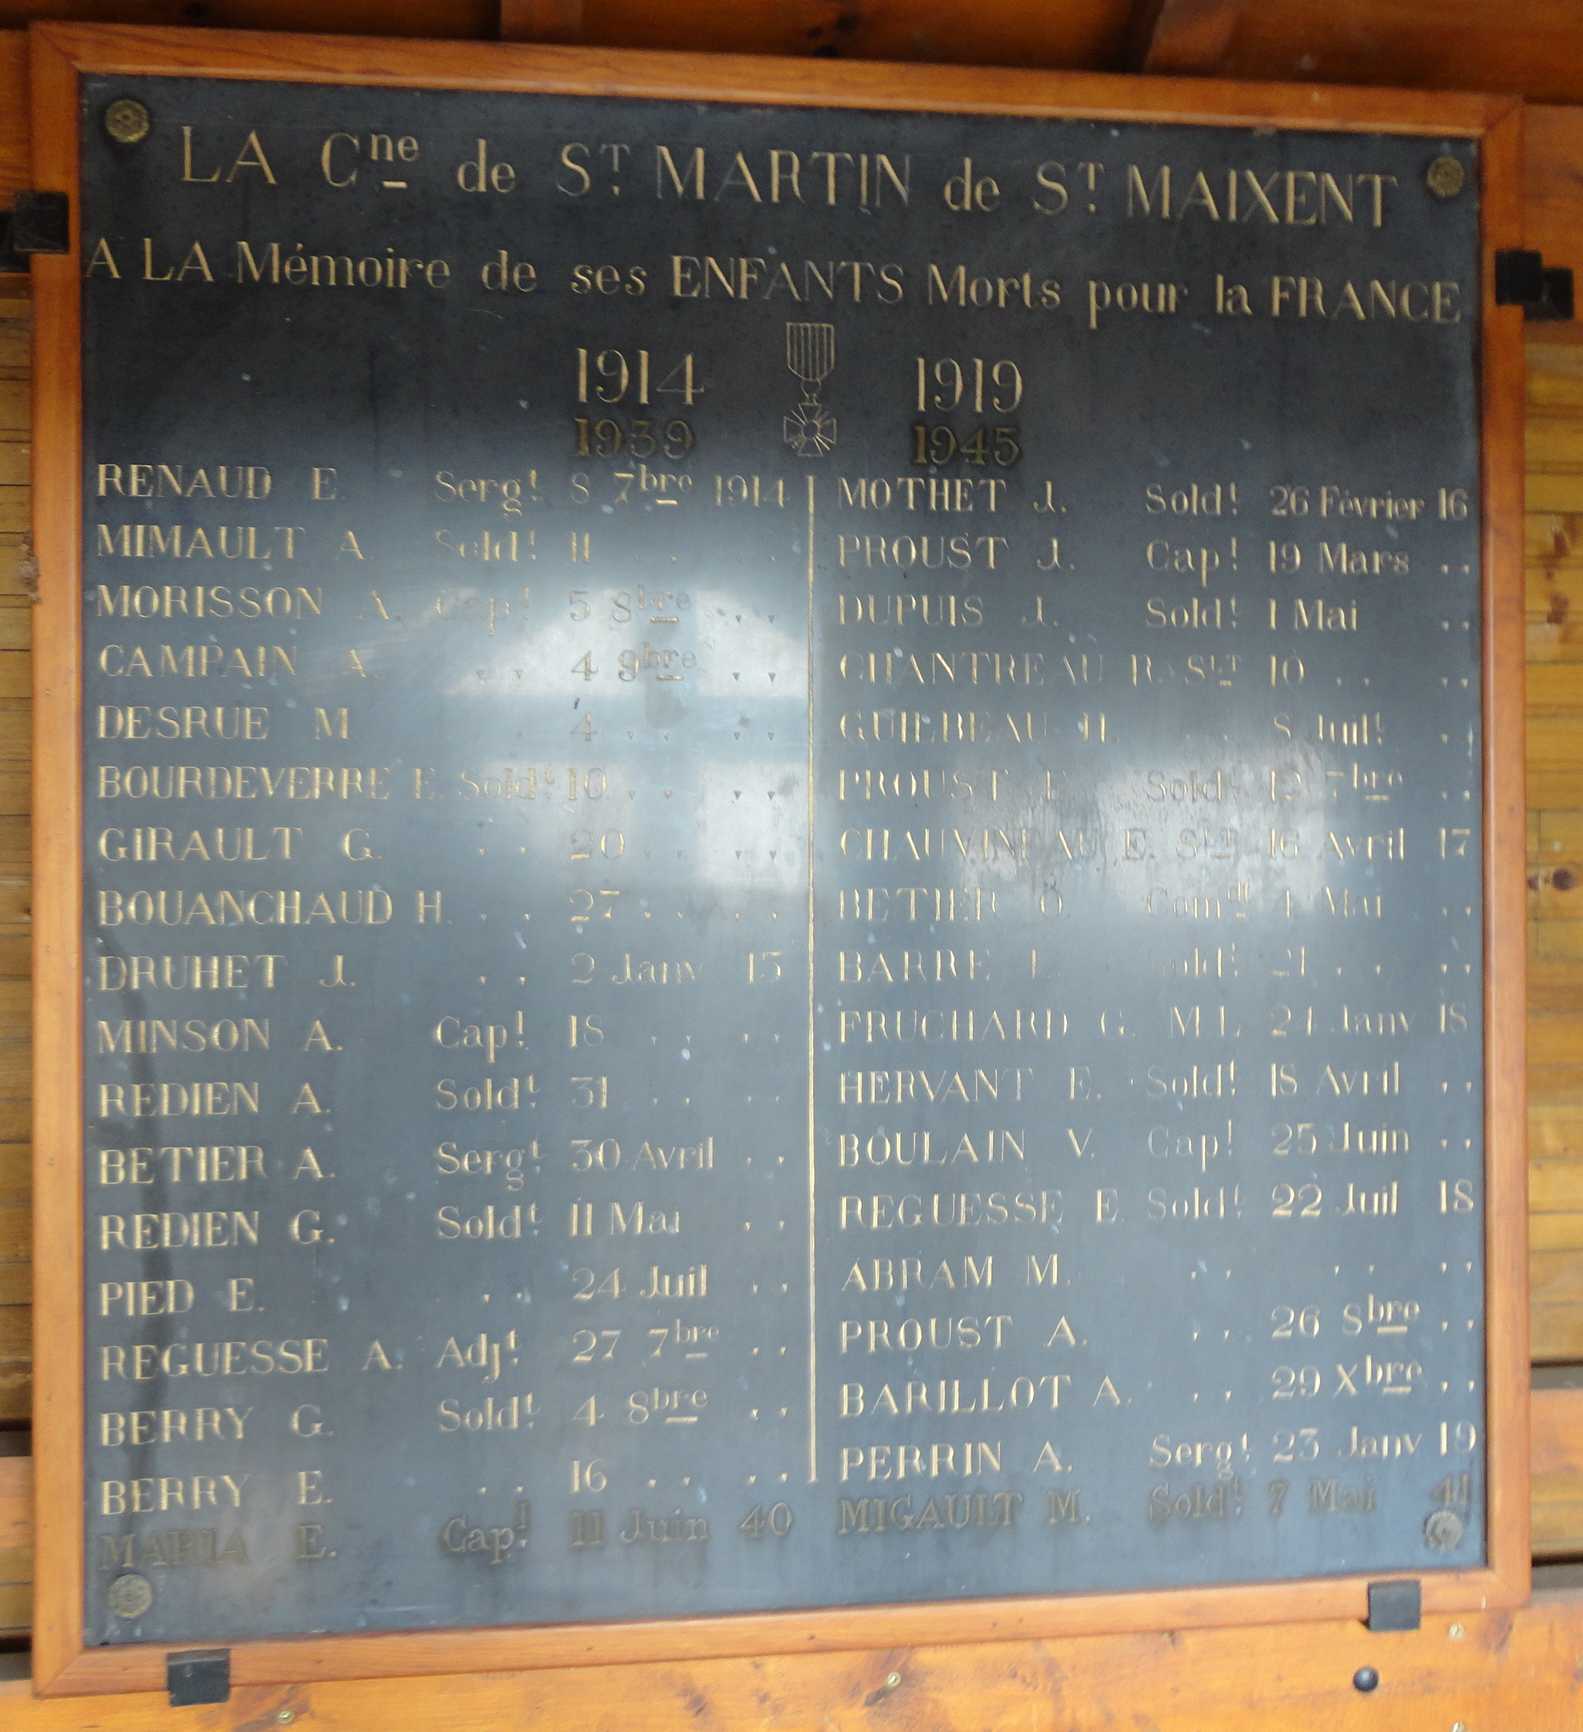 LA Cne de ST. MARTIN de ST. MAIXENT
A LA Mémoire de ses ENFANTS Morts pour la FRANCE
1914 1919
1939 1945
RENAUD E. Sergt. 8 7bre 1914
MIMAULT A. Soldt. 11 .. ..
MORISSON A. Capl. 5 8bre ..
CAMPAIN A. .. 4 9bre ..
DESRUE M .. 4 .. ..
BOURDEVERRE E. Soldt. 10 .. ..
GIRAULT G. .. 20 .. ..
BOUANCHAUD H. .. 27 .. ..
DRUHET J. .. 2 Janv 15
MINSON A. Capl. 18 .. ..
REDIEN A. Soldt. 31 .. ..
BETIER A. Sergt. 30 Avril ..
REDIEN G. Soldt. 11 Mai ..
PIED E. .. 24 Juil ..
REGUESSE A. Adjt. 27 7bre ..
BERRY G. Soldt. 4 8bre ..
BERRY E. .. 16 .. ..
MARIA E. Capl. 11 Juin 40
MOTHET J. Soldt. 26 Février 16
PROUST J. Capl. 19 Mars ..
DUPUIS J. Soldt. 1 Mai ..
CHANTREAU R. SLT 10 .. ..
GUILBEAU H. .. 8 Juilt. ..
PROUST Soldt. 7bre ..
CHAUVINEAU E. SLT 16 Avril 17
BETIER O. Comdt 4 Mai ..
BARRE L. Soldt. 21 .. ..
FRUCHARD G. M.L 24 Janv 18
HERVANT E. Soldt. 18 Avril ..
BOULAIN V. Capl. 25 Juin ..
REGUESSE E. Soldt. 22 Juil 18
ABRAM M. .. .. ..
PROUST A. .. 26 8bre ..
BARILLOT A. .. 29 Xbre ..
PERRIN A. Sergt. 23 Janv 19
MIGAULT M. Soldt. 7 Mai 41